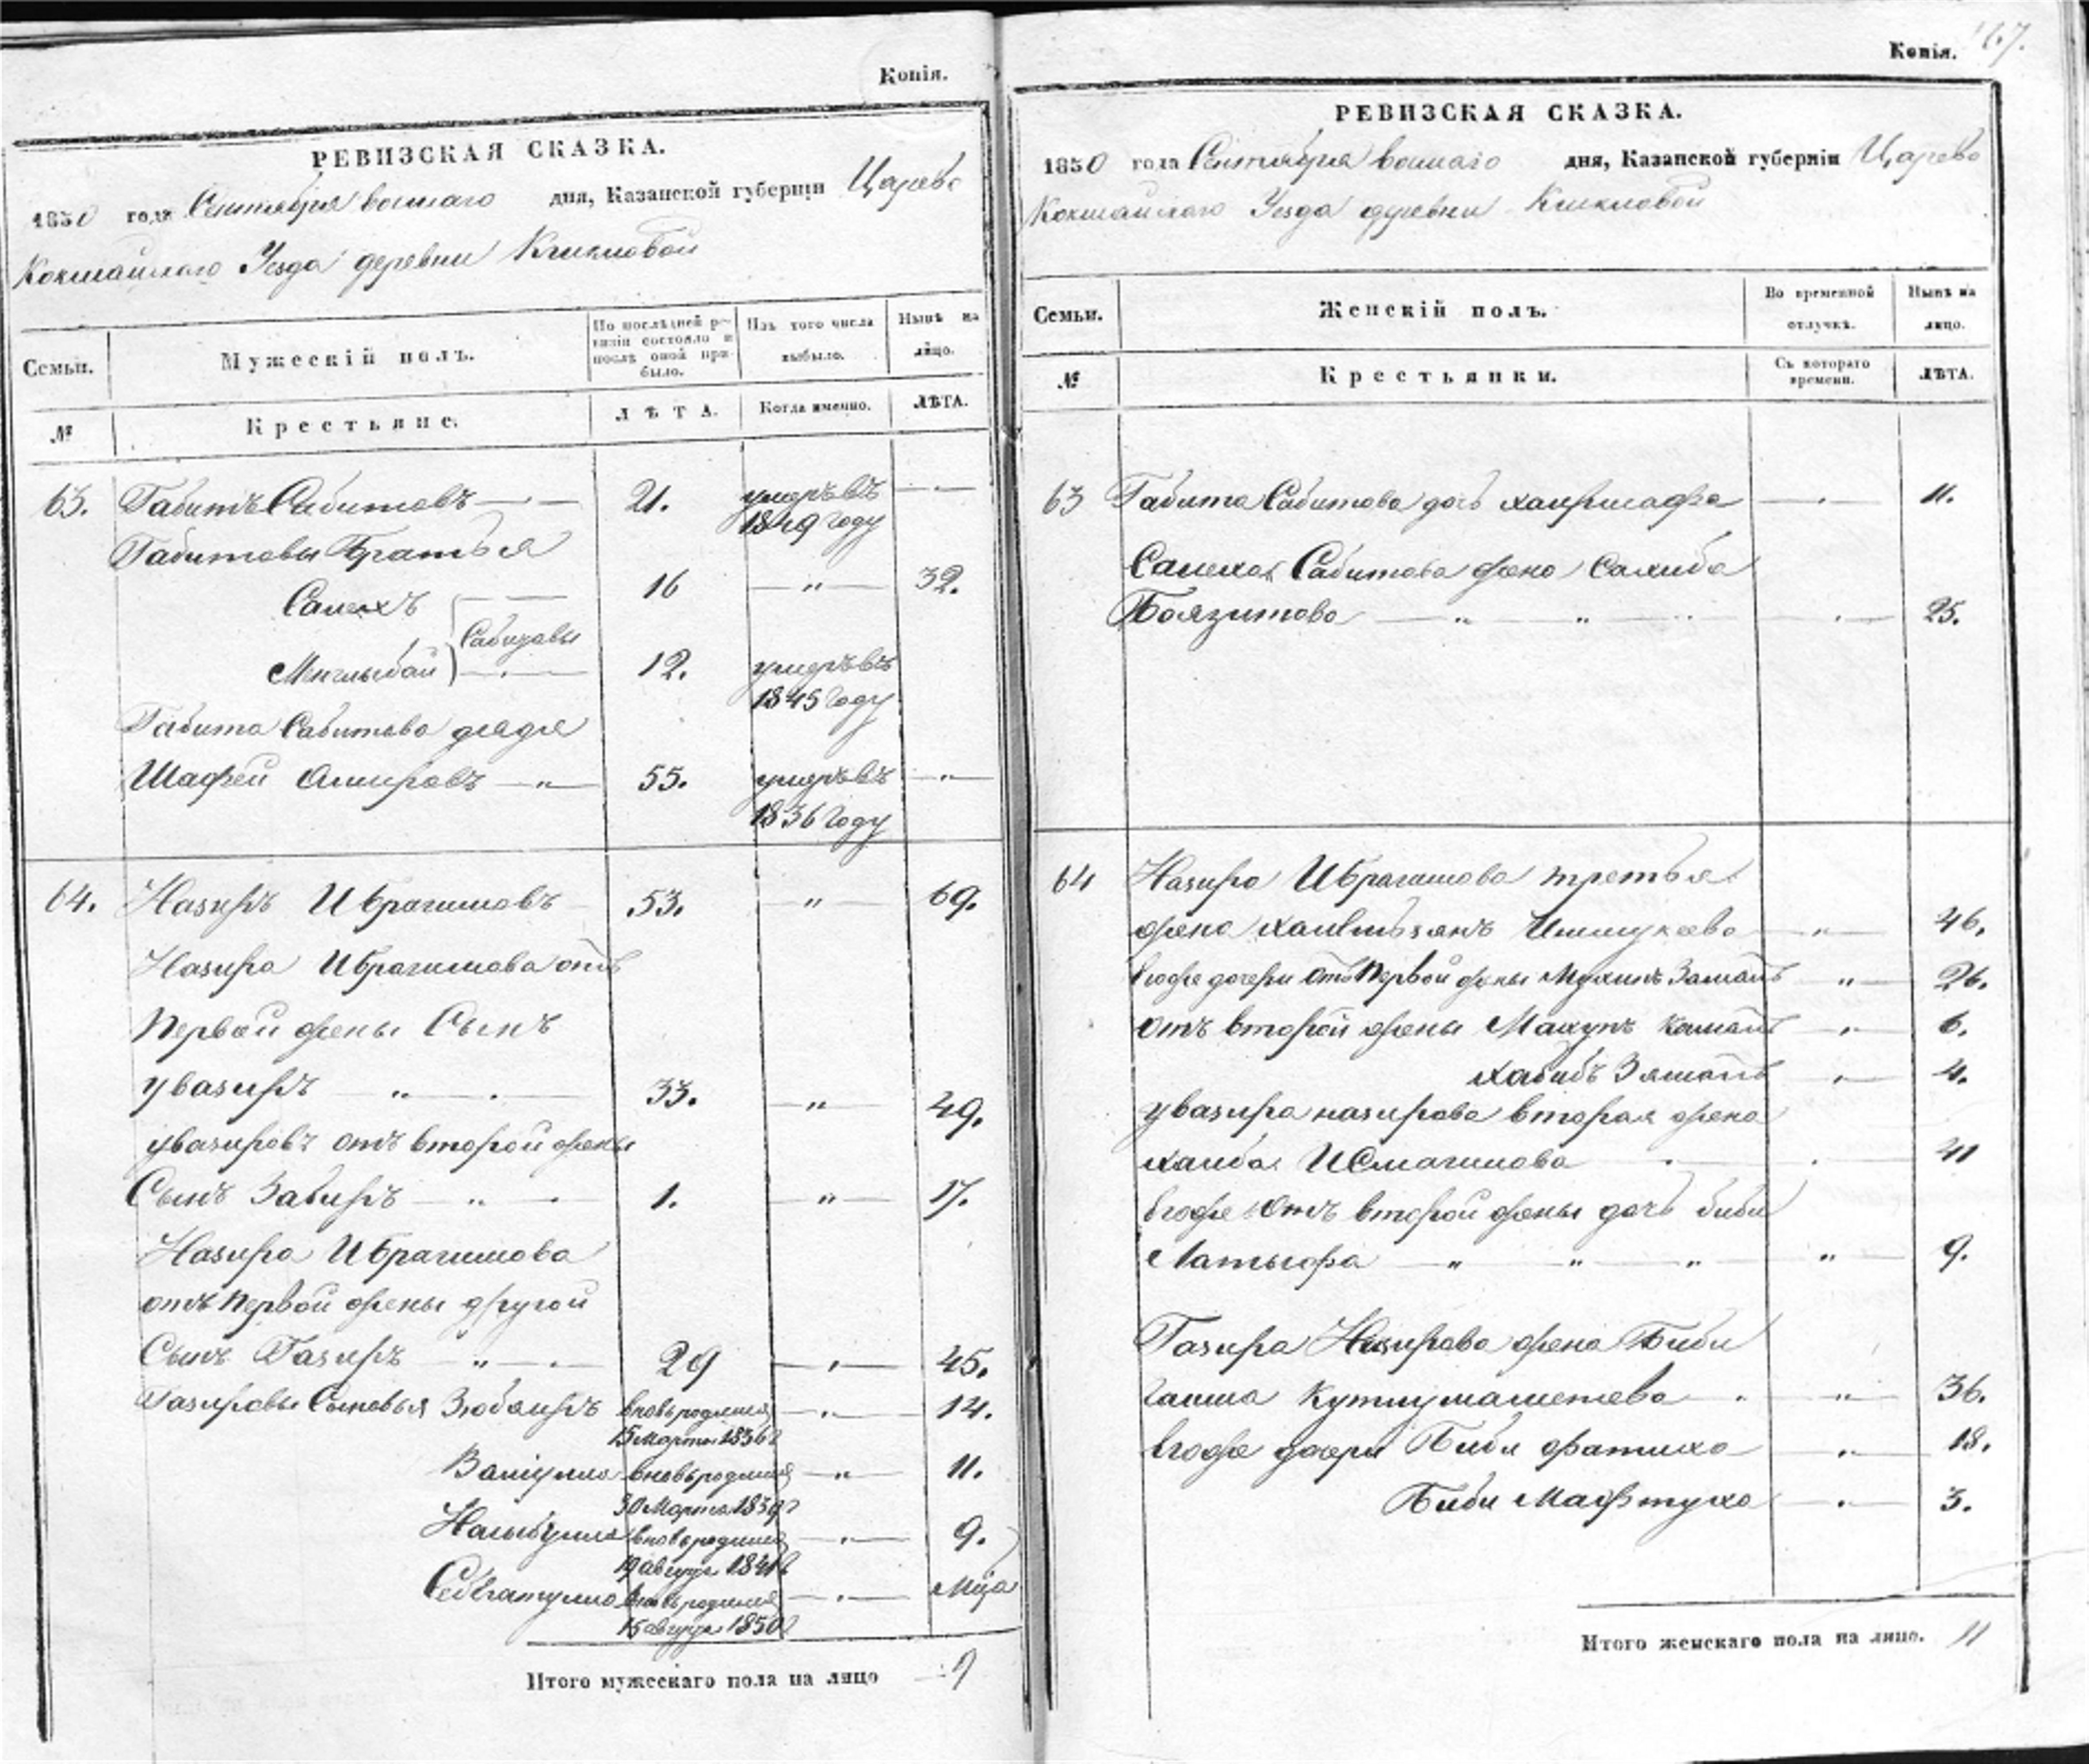 Копія.
РЕВИЗСКАЯ СКАЗКА.
1850 года Сентября восмаго дня, Казанской губерніи Царево
Кокшайскаго Уезда деревни
Семьи. Мужескій полъ. По послѣдней ревизіи состояло и послѣ оной прибыло. Изъ того числа выбыло. Нынѣ на лицо.
№ Крестьяне. ЛѢТА. Когда именно. ЛѢТА.
63. Габитъ Сабитовъ 21. умеръ въ
1849 году
Габитовы Братья
Салехъ 16 " 32.
Сабитовы
Минлыбай 12. умеръ въ
1845 году
Габита Сабитова дядя
Шафей Амировъ " 55. умеръ въ "
1836 году
64. Назиръ Ибрагимовъ 53. " 69.
Назира Ибрагимова отъ
Первой жены Сынъ
Увазиръ " 33. " 49.
Увазировъ отъ второй жены
Сынъ Забиръ " 1. " 17.
Назира Ибрагимова
отъ Первой жены другой
Сынъ Газиръ " 29 " 45.
Газировы Сыновья Зюбаиръ вновь родился " 14.
15 Марта 1836 г
Валiулла вновь родился " 11.
30 Марта 1839 г
вновь родился " 9.
19 августа 1841 г
вновь родился "
15 августа 1850 г
Итого мужескаго пола на лицо 9
Копія. 167.
РЕВИЗСКАЯ СКАЗКА.
1850 года Сентября восмаго дня, Казанской губерніи Царево
Кокшайскаго Уезда деревни
Семьи. Женскій полъ. Во временной отлучкѣ. Нынѣ на лицо.
№ Крестьянки. Съ котораго времени. ЛѢТА.
63 Габита Сабитова дочь 11.
Салеха Сабитова жена Салиба
Боязитова " " 25.
64 Назира Ибрагимова третья
жена Ишмукаева " 46.
его же дочери отъ Первой жены " 26.
отъ второй жены " 6.
Хабибъ Замалъ " 4.
Увазира Назирова вторая жена
Исмагилова 41
его же отъ второй жены дочь Биби
Латыфа " " " " 9.
Газира Назирова жена Биби
гайша Кутлумаметева " 36.
его же дочери Биби фатиха " 18.
Биби Мафтуха " 3.
Итого женскаго пола на лицо. 11